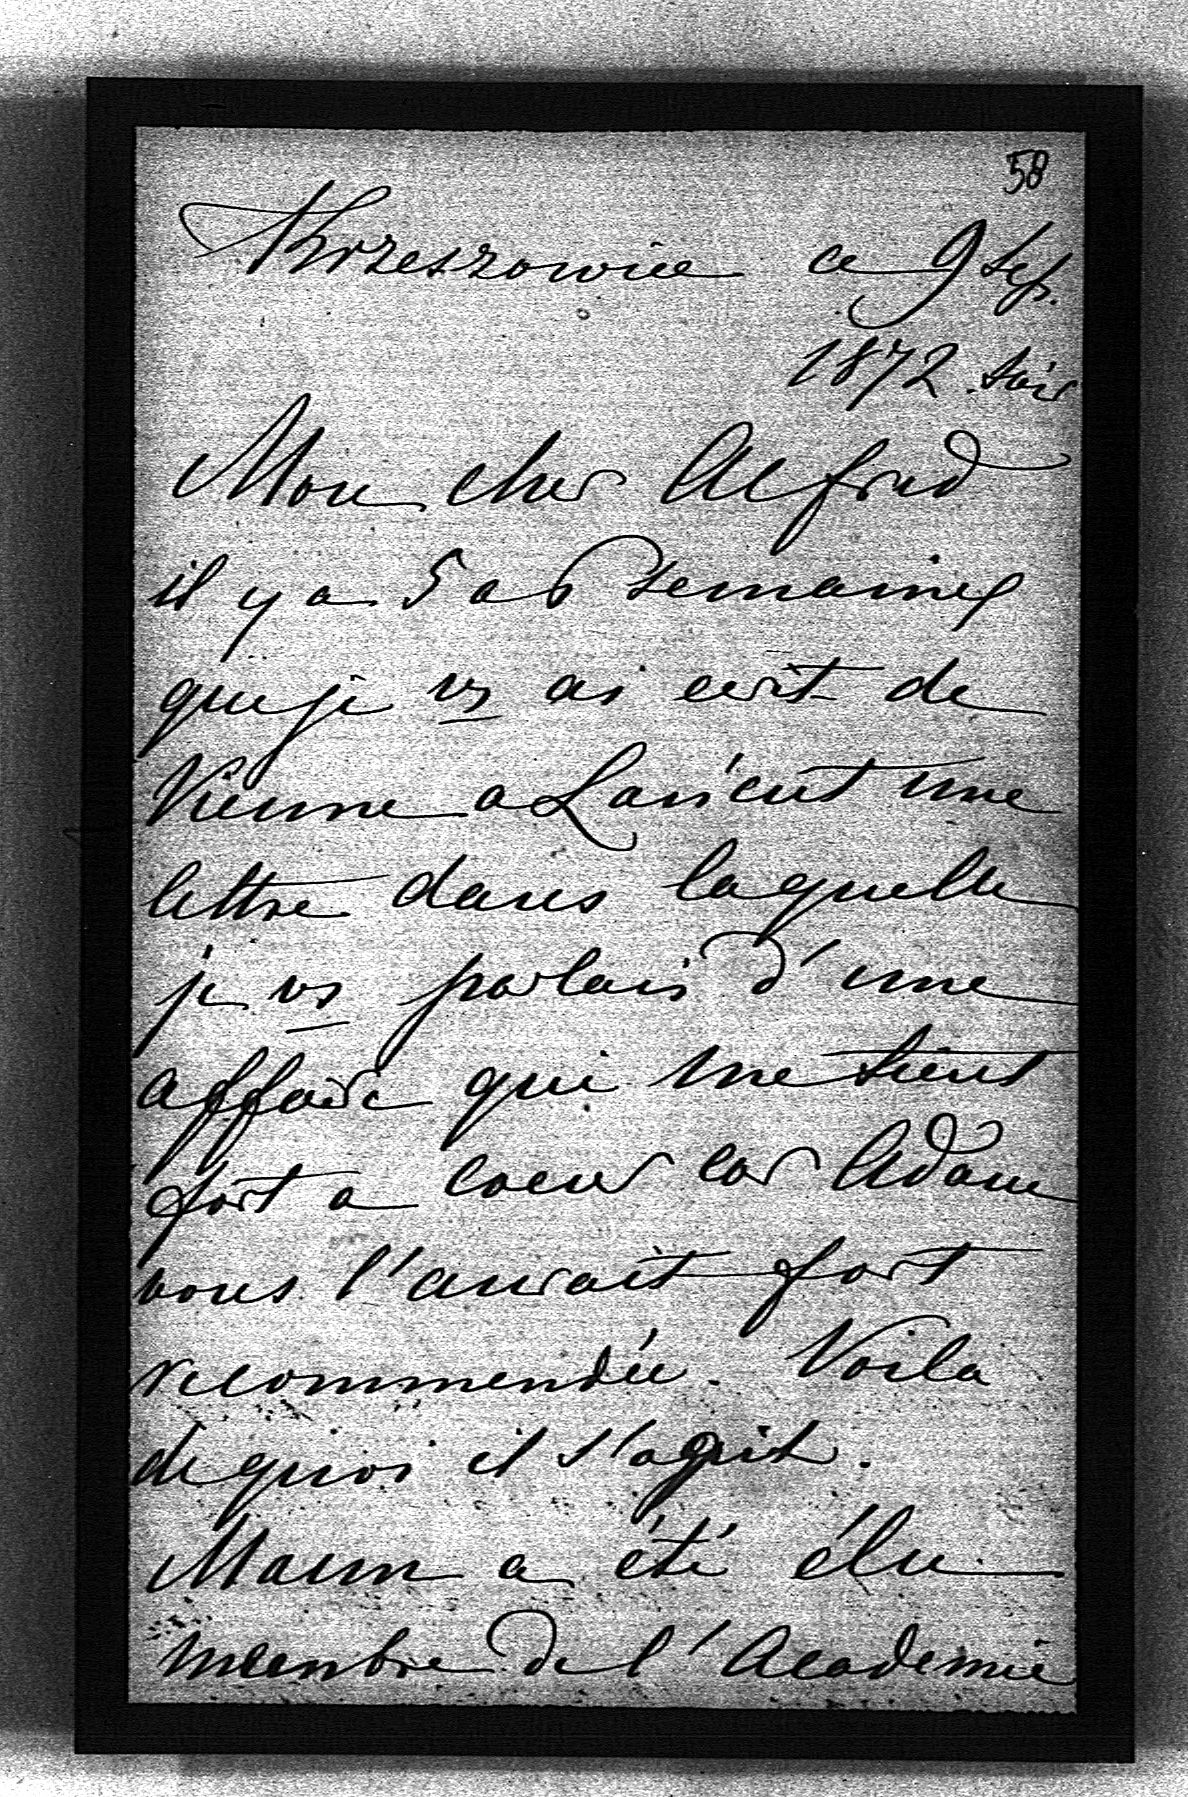 58
Krzeszowice ce 9 Sep.
1872. Soir
Mon cher Alfred
il y a 5 a 6 semaines
que je vs ai ecrit de
Vienne a Lańcut une
lettre dans laquelle
je vs parlais d'une
affaire qui me tient
fort a coeur car Adam
vous l'aurait fort
recommendée. Voila
de quoi il s'agit.
Mann a été élu
membre de l'Academie